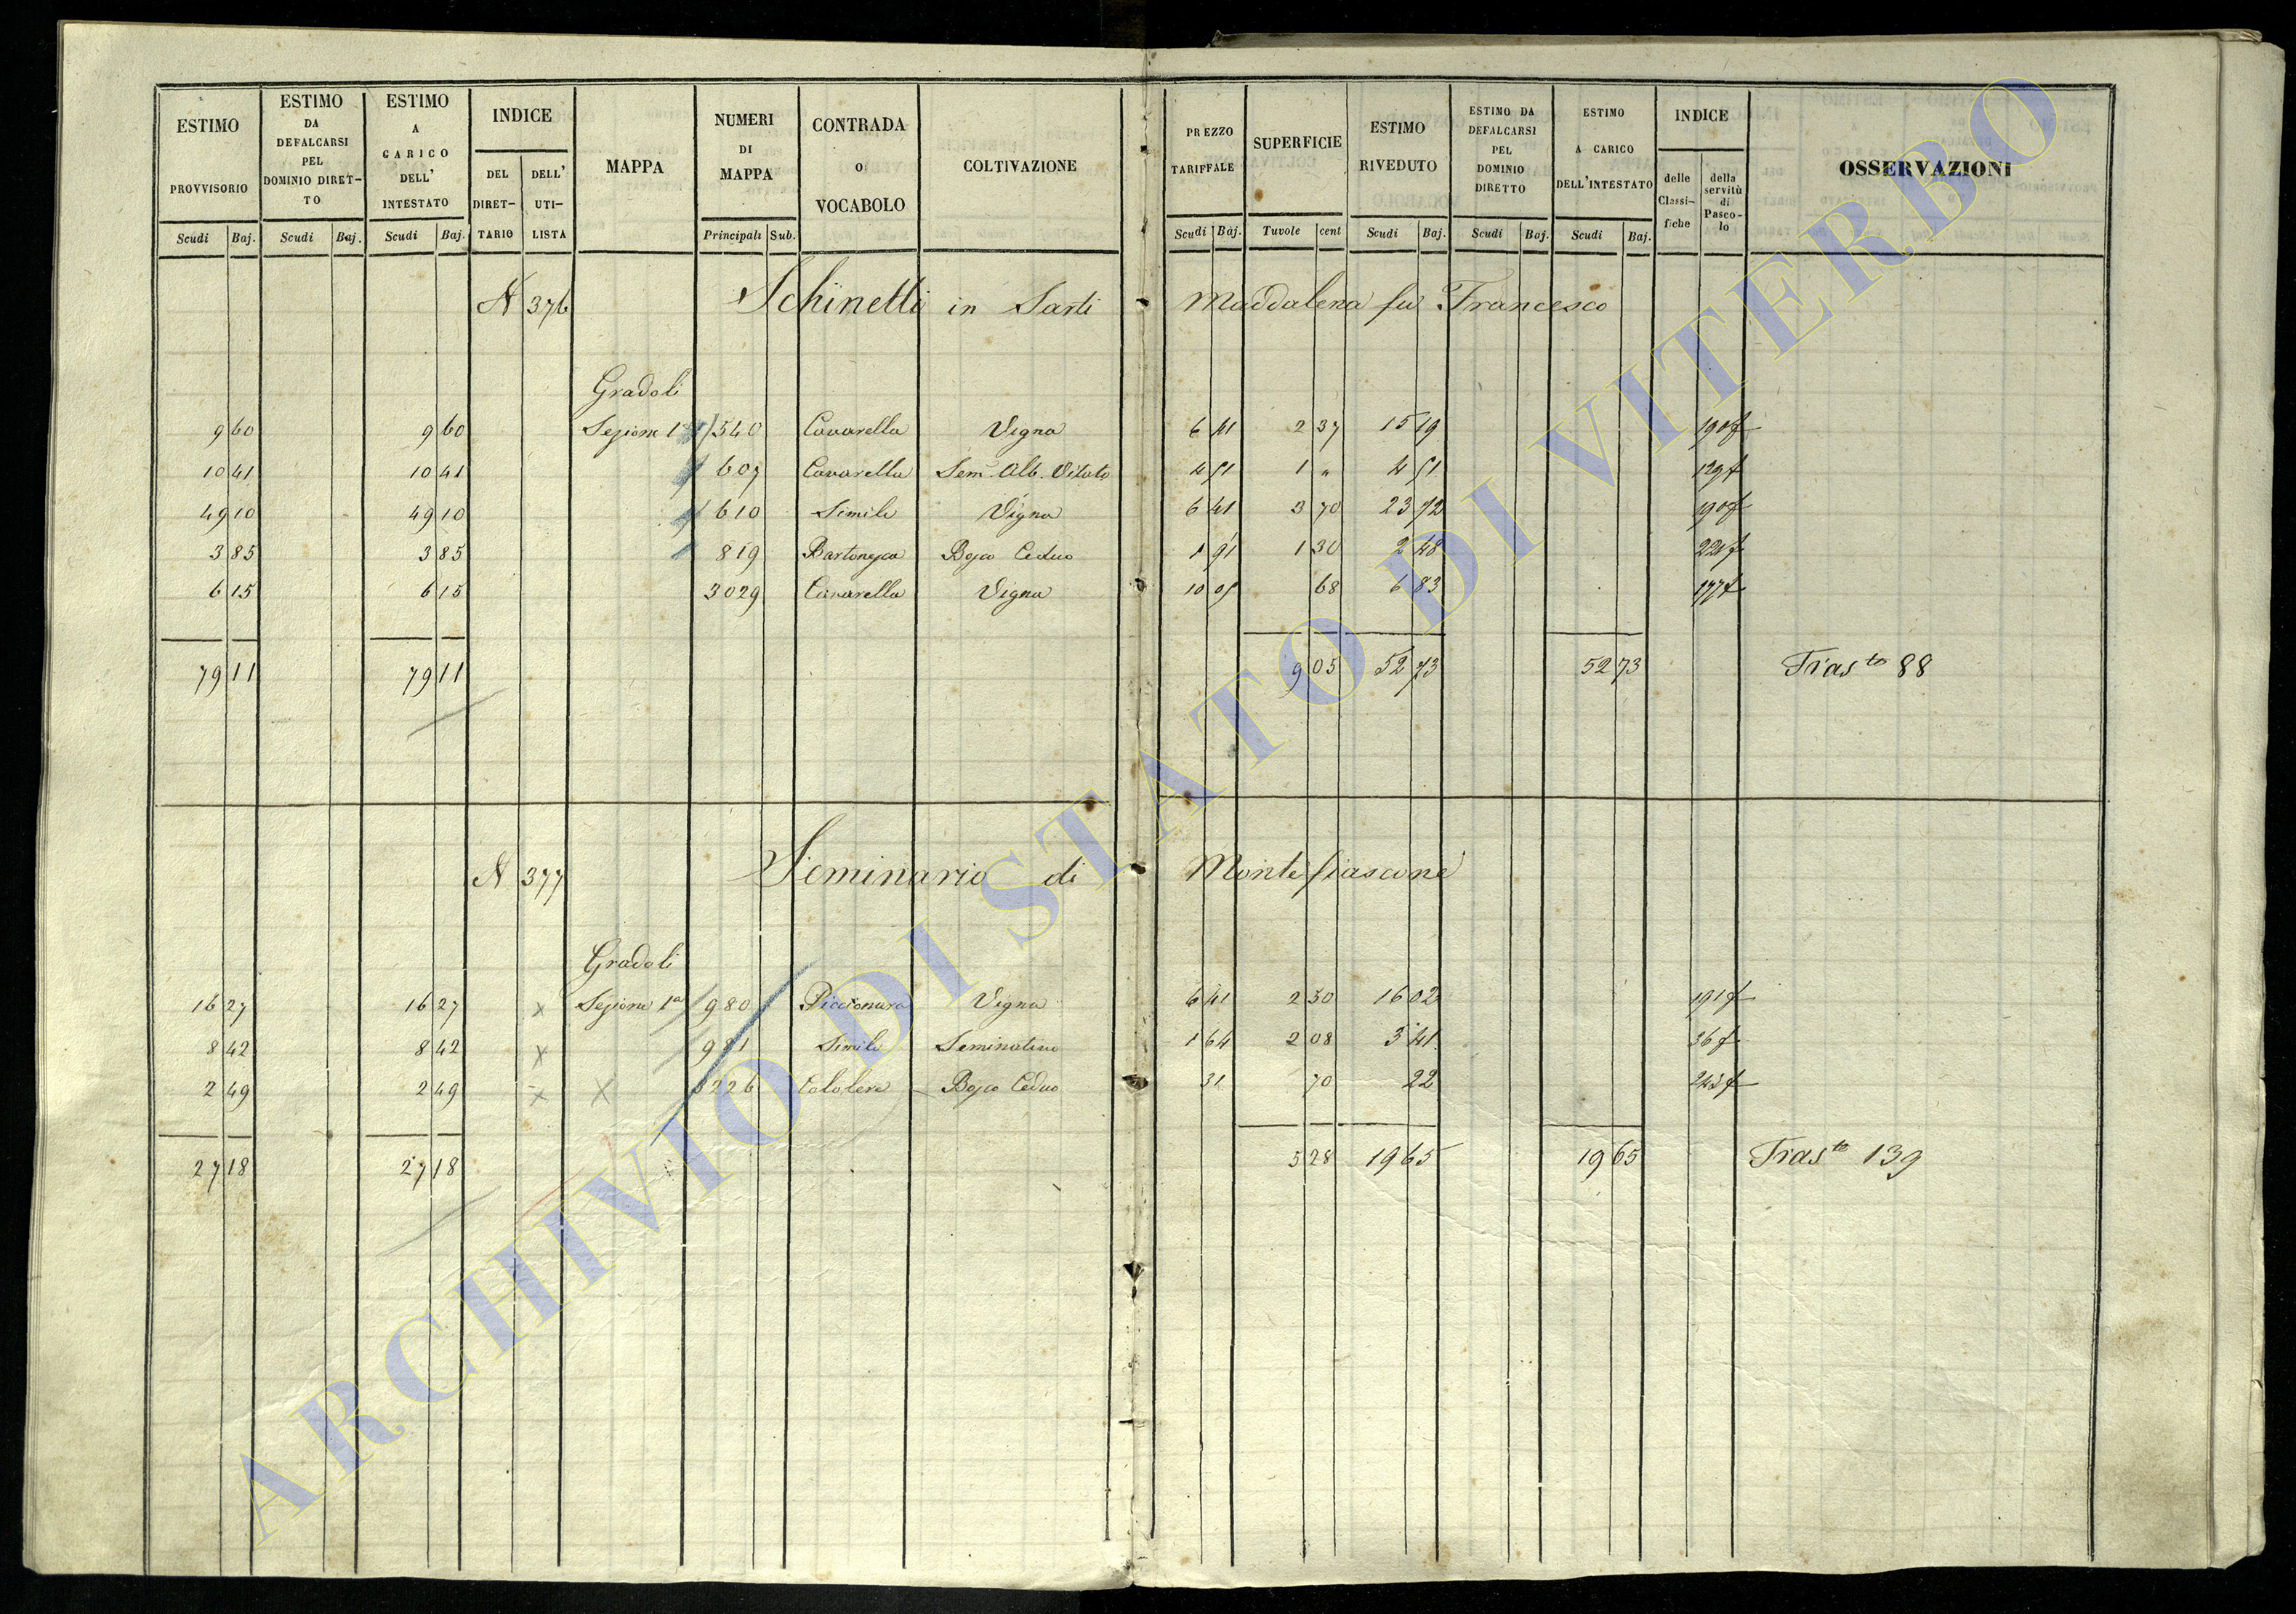 ESTIMO PROVVISORIO Scudi Baj.
ESTIMO DA DEFALCARSI PEL DOMINIO DIRET-TO Scudi Baj.
ESTIMO A CARICO DELL' INTESTATO Scudi Baj.
INDICE DEL DIRET-TARIO DELL' UTI-LISTA
MAPPA
NUMERI DI MAPPA Principali Sub.
CONTRADA o VOCABOLO
COLTIVAZIONE
PREZZO TARIFFALE Scudi Baj.
SUPERFICIE Tavole cent
ESTIMO RIVEDUTO Scudi Baj.
ESTIMO DA DEFALCARSI PEL DOMINIO DIRETTO Scudi Baj.
ESTIMO A CARICO DELL'INTESTATO Scudi Baj.
INDICE delle Classi-fiche della servitù di Pasco-lo
OSSERVAZIONI
N 376 Schinetti in Sarti Maddalena fu Francesco
Gradoli
9 60 9 60 Sezione 1a 540 Cavarella Vigna 6 41 2 37 15 19 190f
10 41 10 41 607 Cavarella Sem. Alb. Vitato 4 51 1 " 4 51 129f
49 10 49 10 610 Simile Vigna 6 41 3 70 23 72 190f
3 85 3 85 819 Bartonesca Bosco Ceduo 1 91 1 30 2 48 221f
6 15 6 15 3029 Cavarella Vigna 10 05 68 6 83 177f
79 11 79 11 9 05 52 73 52 73 Trasto 88
N 377 Seminario di Montefiascone
Gradoli
16 27 16 27 x Sezione 1a 980 Piccionara Vigna 6 41 2 50 16 02 191f
8 42 8 42 x 981 Simile Seminativo 1 64 2 08 3 41 36f
2 49 2 49 x X 3226 Bosco Ceduo 31 70 22 243f
27 18 27 18 5 28 19 65 19 65 Trasto 139
ARCHIVIO DI STATO DI VITERBO